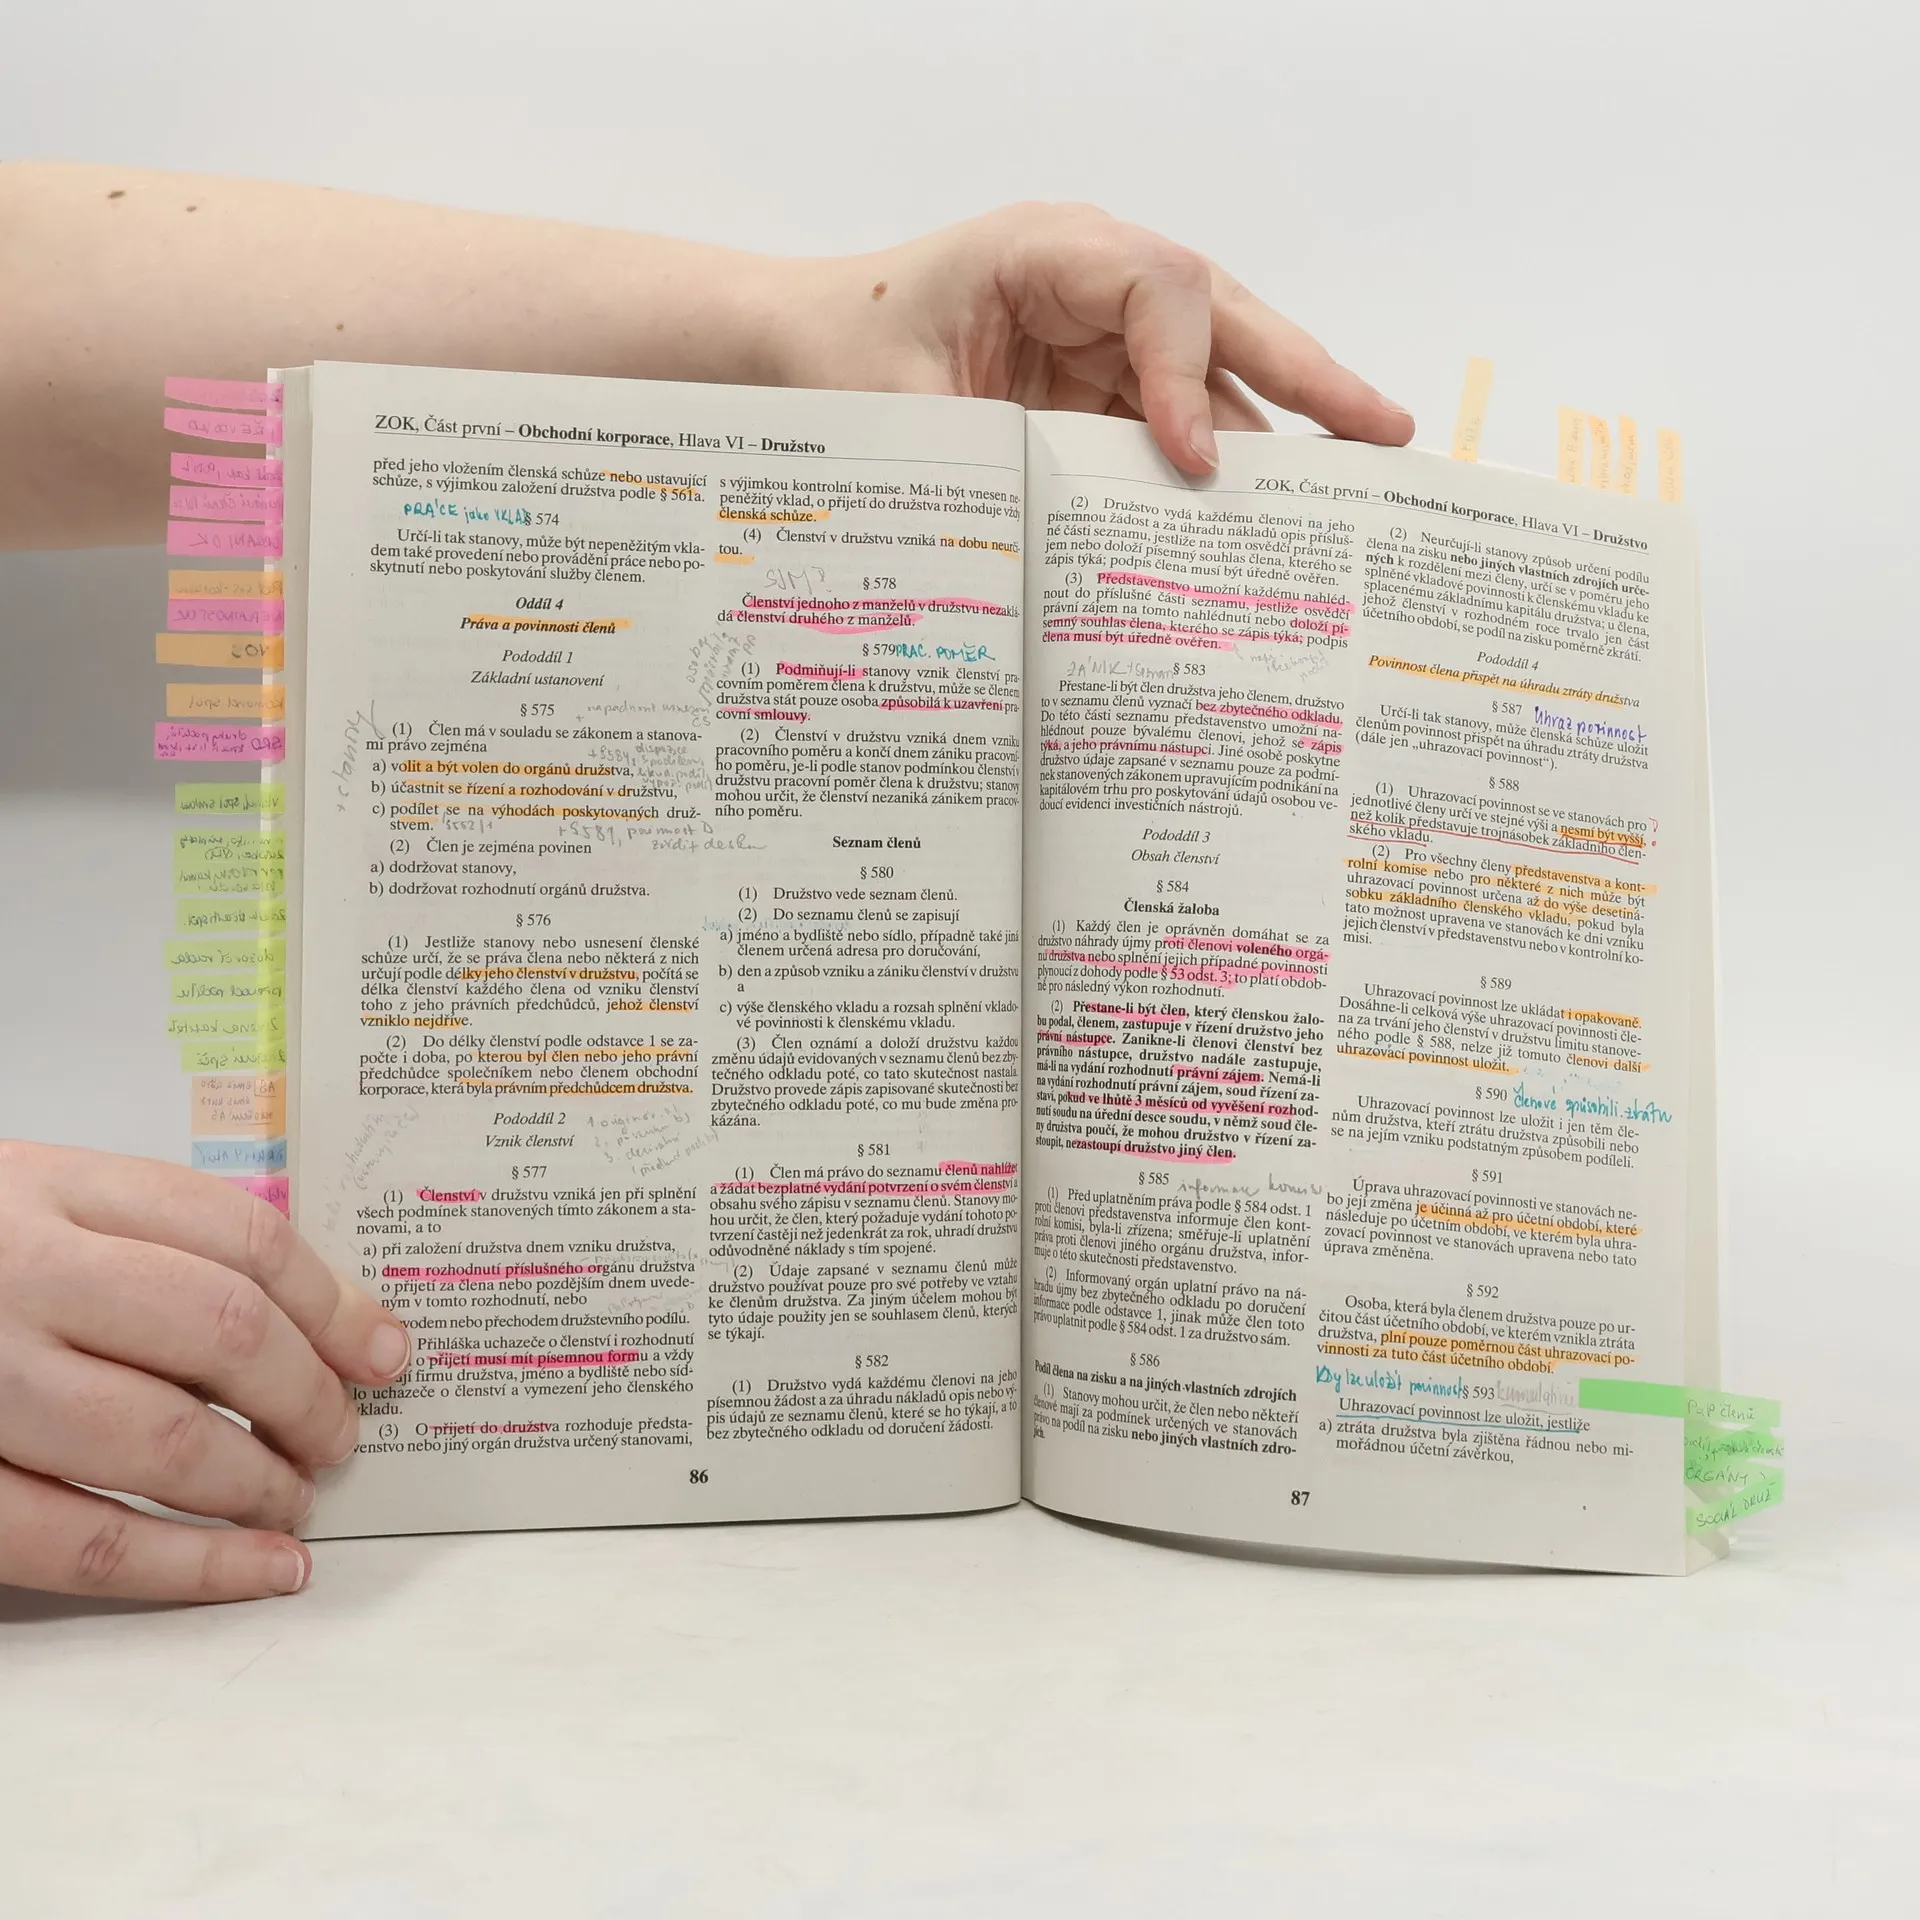 ZOK, Část první – Obchodní korporace, Hlava VI – Družstvo
před jeho vložením členská schůze nebo ustavující
schůze, s výjimkou založení družstva podle § 561a.
PRÁCE jako VKLAD
§ 574
Určí-li tak stanovy, může být nepeněžitým vkla-
dem také provedení nebo provádění práce nebo po-
skytnutí nebo poskytování služby členem.
Oddíl 4
Práva a povinnosti členů
Pododdíl 1
Základní ustanovení
§ 575
(1) Člen má v souladu se zákonem a stanova-
mi právo zejména
a) volit a být volen do orgánů družstva,
b) účastnit se řízení a rozhodování v družstvu,
c) podílet se na výhodách poskytovaných druž-
stvem.
+ § 589, povinnost D
(2) Člen je zejména povinen
a) dodržovat stanovy,
b) dodržovat rozhodnutí orgánů družstva.
§ 576
(1) Jestliže stanovy nebo usnesení členské
schůze určí, že se práva člena nebo některá z nich
určují podle délky jeho členství v družstvu, počítá se
délka členství každého člena od vzniku členství
toho z jeho právních předchůdců, jehož členství
vzniklo nejdříve.
(2) Do délky členství podle odstavce 1 se za-
počte i doba, po kterou byl člen nebo jeho právní
předchůdce společníkem nebo členem obchodní
korporace, která byla právním předchůdcem družstva.
Pododdíl 2
Vznik členství
§ 577
(1) Členství v družstvu vzniká jen při splnění
všech podmínek stanovených tímto zákonem a sta-
novami, a to
a) při založení družstva dnem vzniku družstva,
b) dnem rozhodnutí příslušného orgánu družstva
o přijetí za člena nebo pozdějším dnem uvede-
ným v tomto rozhodnutí, nebo
vodem nebo přechodem družstevního podílu.
Přihláška uchazeče o členství i rozhodnutí
o přijetí musí mít písemnou formu a vždy
ají firmu družstva, jméno a bydliště nebo síd-
lo uchazeče o členství a vymezení jeho členského
vkladu.
(3) O přijetí do družstva rozhoduje předsta-
venstvo nebo jiný orgán družstva určený stanovami,
s výjimkou kontrolní komise. Má-li být vnesen ne-
peněžitý vklad, o přijetí do družstva rozhoduje vždy
členská schůze.
(4) Členství v družstvu vzniká na dobu neurči-
tou.
§ 578
Členství jednoho z manželů v družstvu nezaklá-
dá členství druhého z manželů.
§ 579 PRAC. POMĚR
(1) Podmiňují-li stanovy vznik členství pra-
covním poměrem člena k družstvu, může se členem
družstva stát pouze osoba způsobilá k uzavření pra-
covní smlouvy.
(2) Členství v družstvu vzniká dnem vzniku
pracovního poměru a končí dnem zániku pracovní-
ho poměru, je-li podle stanov podmínkou členství v
družstvu pracovní poměr člena k družstvu; stanovy
mohou určit, že členství nezaniká zánikem pracov-
ního poměru.
Seznam členů
§ 580
(1) Družstvo vede seznam členů.
(2) Do seznamu členů se zapisují
a) jméno a bydliště nebo sídlo, případně také jiná
členem určená adresa pro doručování,
b) den a způsob vzniku a zániku členství v družstvu
a
c) výše členského vkladu a rozsah splnění vklado-
vé povinnosti k členskému vkladu.
(3) Člen oznámí a doloží družstvu každou
změnu údajů evidovaných v seznamu členů bez zby-
tečného odkladu poté, co tato skutečnost nastala.
Družstvo provede zápis zapisované skutečnosti bez
zbytečného odkladu poté, co mu bude změna pro-
kázána.
§ 581
(1) Člen má právo do seznamu členů nahlížet
a žádat bezplatné vydání potvrzení o svém členství a
obsahu svého zápisu v seznamu členů. Stanovy mo-
hou určit, že člen, který požaduje vydání tohoto po-
tvrzení častěji než jedenkrát za rok, uhradí družstvu
odůvodněné náklady s tím spojené.
(2) Údaje zapsané v seznamu členů může
družstvo používat pouze pro své potřeby ve vztahu
ke členům družstva. Za jiným účelem mohou být
tyto údaje použity jen se souhlasem členů, kterých
se týkají.
§ 582
(1) Družstvo vydá každému členovi na jeho
písemnou žádost a za úhradu nákladů opis nebo vý-
pis údajů ze seznamu členů, které se ho týkají, a to
bez zbytečného odkladu od doručení žádosti.
86
ZOK, Část první – Obchodní korporace, Hlava VI – Družstvo
(2) Družstvo vydá každému členovi na jeho
písemnou žádost a za úhradu nákladů opis přísluš-
né části seznamu, jestliže na tom osvědčí právní zá-
jem nebo doloží písemný souhlas člena, kterého se
zápis týká; podpis člena musí být úředně ověřen.
(3) Představenstvo umožní každému nahléd-
nout do příslušné části seznamu, jestliže osvědčí
právní zájem na tomto nahlédnutí nebo doloží pí-
semný souhlas člena, kterého se zápis týká; podpis
člena musí být úředně ověřen.
§ 583
Přestane-li být člen družstva jeho členem, družstvo
to v seznamu členů vyznačí bez zbytečného odkladu.
Do této části seznamu představenstvo umožní na-
hlédnout pouze bývalému členovi, jehož se zápis
týká, a jeho právnímu nástupci. Jiné osobě poskytne
družstvo údaje zapsané v seznamu pouze za podmí-
nek stanovených zákonem upravujícím podnikání na
kapitálovém trhu pro poskytování údajů osobou ve-
doucí evidenci investičních nástrojů.
Pododdíl 3
Obsah členství
§ 584
Členská žaloba
(1) Každý člen je oprávněn domáhat se za
družstvo náhrady újmy proti členovi voleného orgá-
nu družstva nebo splnění jejich případné povinnosti
plynoucí z dohody podle § 53 odst. 3; to platí obdob-
ně pro následný výkon rozhodnutí.
(2) Přestane-li být člen, který členskou žalo-
bu podal, členem, zastupuje v řízení družstvo jeho
právní nástupce. Zanikne-li členovi členství bez
právního nástupce, družstvo nadále zastupuje,
má-li na vydání rozhodnutí právní zájem. Nemá-li
na vydání rozhodnutí právní zájem, soud řízení za-
staví, pokud ve lhůtě 3 měsíců od vyvěšení rozhod-
nutí soudu na úřední desce soudu, v němž soud čle-
ny družstva poučí, že mohou družstvo v řízení za-
stoupit, nezastoupí družstvo jiný člen.
§ 585 informace komisi
(1) Před uplatněním práva podle § 584 odst. 1
proti členovi představenstva informuje člen kont-
rolní komisi, byla-li zřízena; směřuje-li uplatnění
práva proti členovi jiného orgánu družstva, infor-
muje o této skutečnosti představenstvo.
(2) Informovaný orgán uplatní právo na ná-
hradu újmy bez zbytečného odkladu po doručení
informace podle odstavce 1, jinak může člen toto
právo uplatnit podle § 584 odst. 1 za družstvo sám.
§ 586
Podíl člena na zisku a na jiných vlastních zdrojích
(1) Stanovy mohou určit, že člen nebo někteří
členové mají za podmínek určených ve stanovách
právo na podíl na zisku nebo jiných vlastních zdro-
jích.
(2) Neurčují-li stanovy způsob určení podílu
člena na zisku nebo jiných vlastních zdrojích urče-
ných k rozdělení mezi členy, určí se v poměru jeho
splněné vkladové povinnosti k členskému vkladu ke
splacenému základnímu kapitálu družstva; u člena,
jehož členství v rozhodném roce trvalo jen část
účetního období, se podíl na zisku poměrně zkrátí.
Pododdíl 4
Povinnost člena přispět na úhradu ztráty družstva
§ 587 Uhraz povinnost
Určí-li tak stanovy, může členská schůze uložit
členům povinnost přispět na úhradu ztráty družstva
(dále jen „uhrazovací povinnost“).
§ 588
(1) Uhrazovací povinnost se ve stanovách pro
jednotlivé členy určí ve stejné výši a nesmí být vyšší,
než kolik představuje trojnásobek základního člen-
ského vkladu.
(2) Pro všechny členy představenstva a kont-
rolní komise nebo pro některé z nich může být
uhrazovací povinnost určena až do výše desetiná-
sobku základního členského vkladu, pokud byla
tato možnost upravena ve stanovách ke dni vzniku
jejich členství v představenstvu nebo v kontrolní ko-
misi.
§ 589
Uhrazovací povinnost lze ukládat i opakovaně.
Dosáhne-li celková výše uhrazovací povinnosti čle-
na za trvání jeho členství v družstvu limitu stanove-
ného podle § 588, nelze již tomuto členovi další
uhrazovací povinnost uložit.
§ 590 členové způsobili ztrátu
Uhrazovací povinnost lze uložit i jen těm čle-
nům družstva, kteří ztrátu družstva způsobili nebo
se na jejím vzniku podstatným způsobem podíleli.
§ 591
Úprava uhrazovací povinnosti ve stanovách ne-
bo její změna je účinná až pro účetní období, které
následuje po účetním období, ve kterém byla uhra-
zovací povinnost ve stanovách upravena nebo tato
úprava změněna.
§ 592
Osoba, která byla členem družstva pouze po ur-
čitou část účetního období, ve kterém vznikla ztráta
družstva, plní pouze poměrnou část uhrazovací po-
vinnosti za tuto část účetního období.
Kdy lze uložit povinnost § 593 kumulativně
Uhrazovací povinnost lze uložit, jestliže
a) ztráta družstva byla zjištěna řádnou nebo mi-
mořádnou účetní závěrkou,
87
PaP členů
ORGÁNY
SOCIÁL DRUŽ